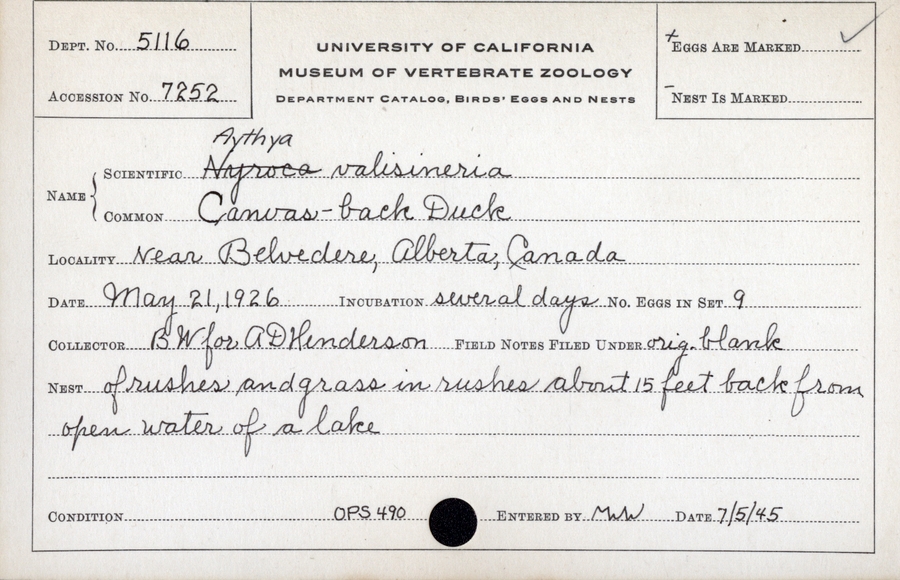 DEPT. No. 5116
ACCESSION No. 7252
UNIVERSITY OF CALIFORNIA
MUSEUM OF VERTEBRATE ZOOLOGY
DEPARTMENT CATALOG, BIRDS' EGGS AND NESTS
+ EGGS ARE MARKED ✓
- NEST IS MARKED
Aythya
NAME { SCIENTIFIC Nyroca valisineria
COMMON Canvas-back Duck
LOCALITY Near Belvedere, Alberta, Canada
DATE May 21, 1926 INCUBATION several days No. EGGS IN SET 9
COLLECTOR BW for A D Henderson FIELD NOTES FILED UNDER orig. blank
NEST of rushes and grass in rushes about 15 feet back from
open water of a lake
CONDITION OPS 490 ENTERED BY DATE 7/5/45